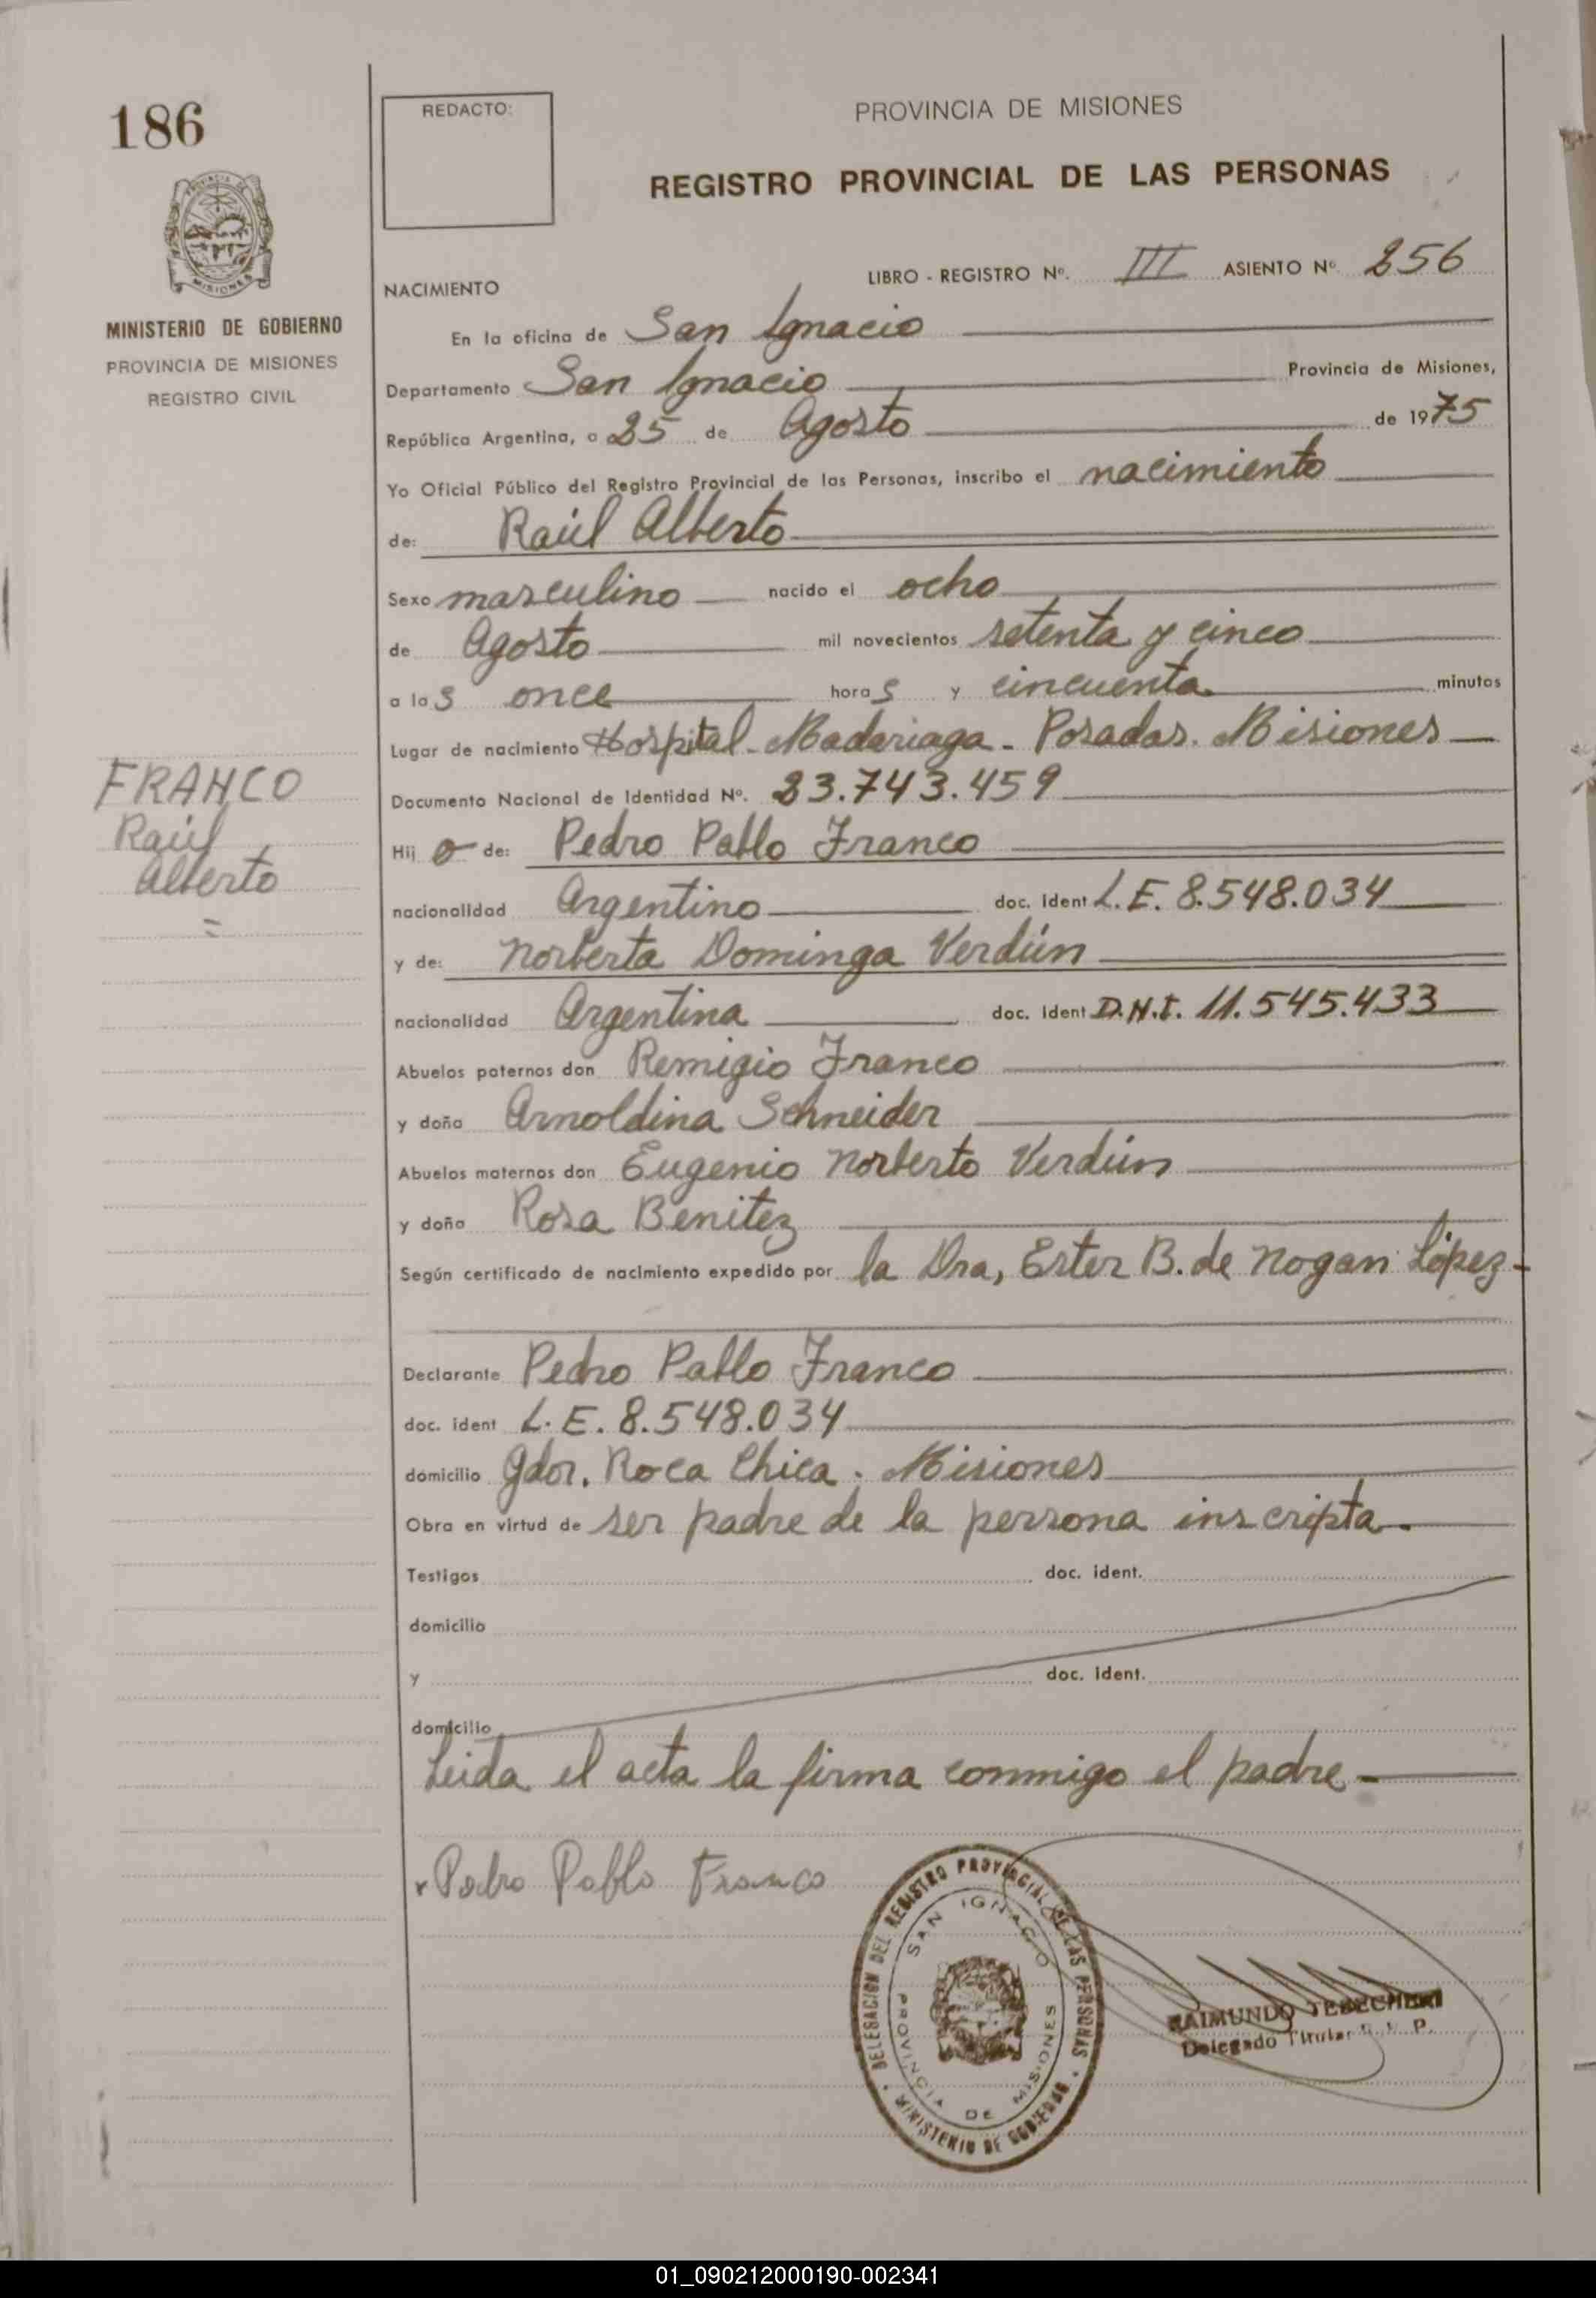 186
REDACTO:
PROVINCIA DE MISIONES
REGISTRO PROVINCIAL DE LAS PERSONAS
MISIONES
MINISTERIO DE GOBIERNO
PROVINCIA DE MISIONES
REGISTRO CIVIL
NACIMIENTO
LIBRO - REGISTRO Nº. III ASIENTO Nº 256
En la oficina de San Ignacio
Departamento San Ignacio Provincia de Misiones,
República Argentina, a 25 de Agosto de 1975
Yo Oficial Público del Registro Provincial de las Personas, inscribo el nacimiento
de: Raúl Alberto
Sexo masculino nacido el ocho
de Agosto mil novecientos setenta y cinco
a las once horas y cincuenta minutos
Lugar de nacimiento Hospital - Madariaga - Posadas. Misiones
Documento Nacional de Identidad Nº. 23.743.459
FRANCO
Raúl
Alberto
=
Hijo de: Pedro Pablo Franco
nacionalidad Argentino doc. ident L.E. 8.548.034
y de: Norberta Dominga Verdún
nacionalidad Argentina doc. ident D.N.I. 11.545.433
Abuelos paternos don Remigio Franco
y doña Arnoldina Schneider
Abuelos maternos don Eugenio Norberto Verdún
y doña Rosa Benitez
Según certificado de nacimiento expedido por la Dra, Ester B. de Nogan López-
Declarante Pedro Pablo Franco
doc. ident L.E. 8.548.034
domicilio Gdor. Roca Chica. Misiones
Obra en virtud de ser padre de la persona inscripta.
Testigos doc. ident.
domicilio
y doc. ident.
domicilio
Leida el acta la firma conmigo el padre -
x Pedro Pablo Franco
DELEGACION DEL REGISTRO PROVINCIAL DE LAS PERSONAS
SAN IGNACIO
PROVINCIA DE MISIONES
MINISTERIO DE GOBIERNO
RAIMUNDO
Delegado Titular R. P. P.
01_090212000190-002341